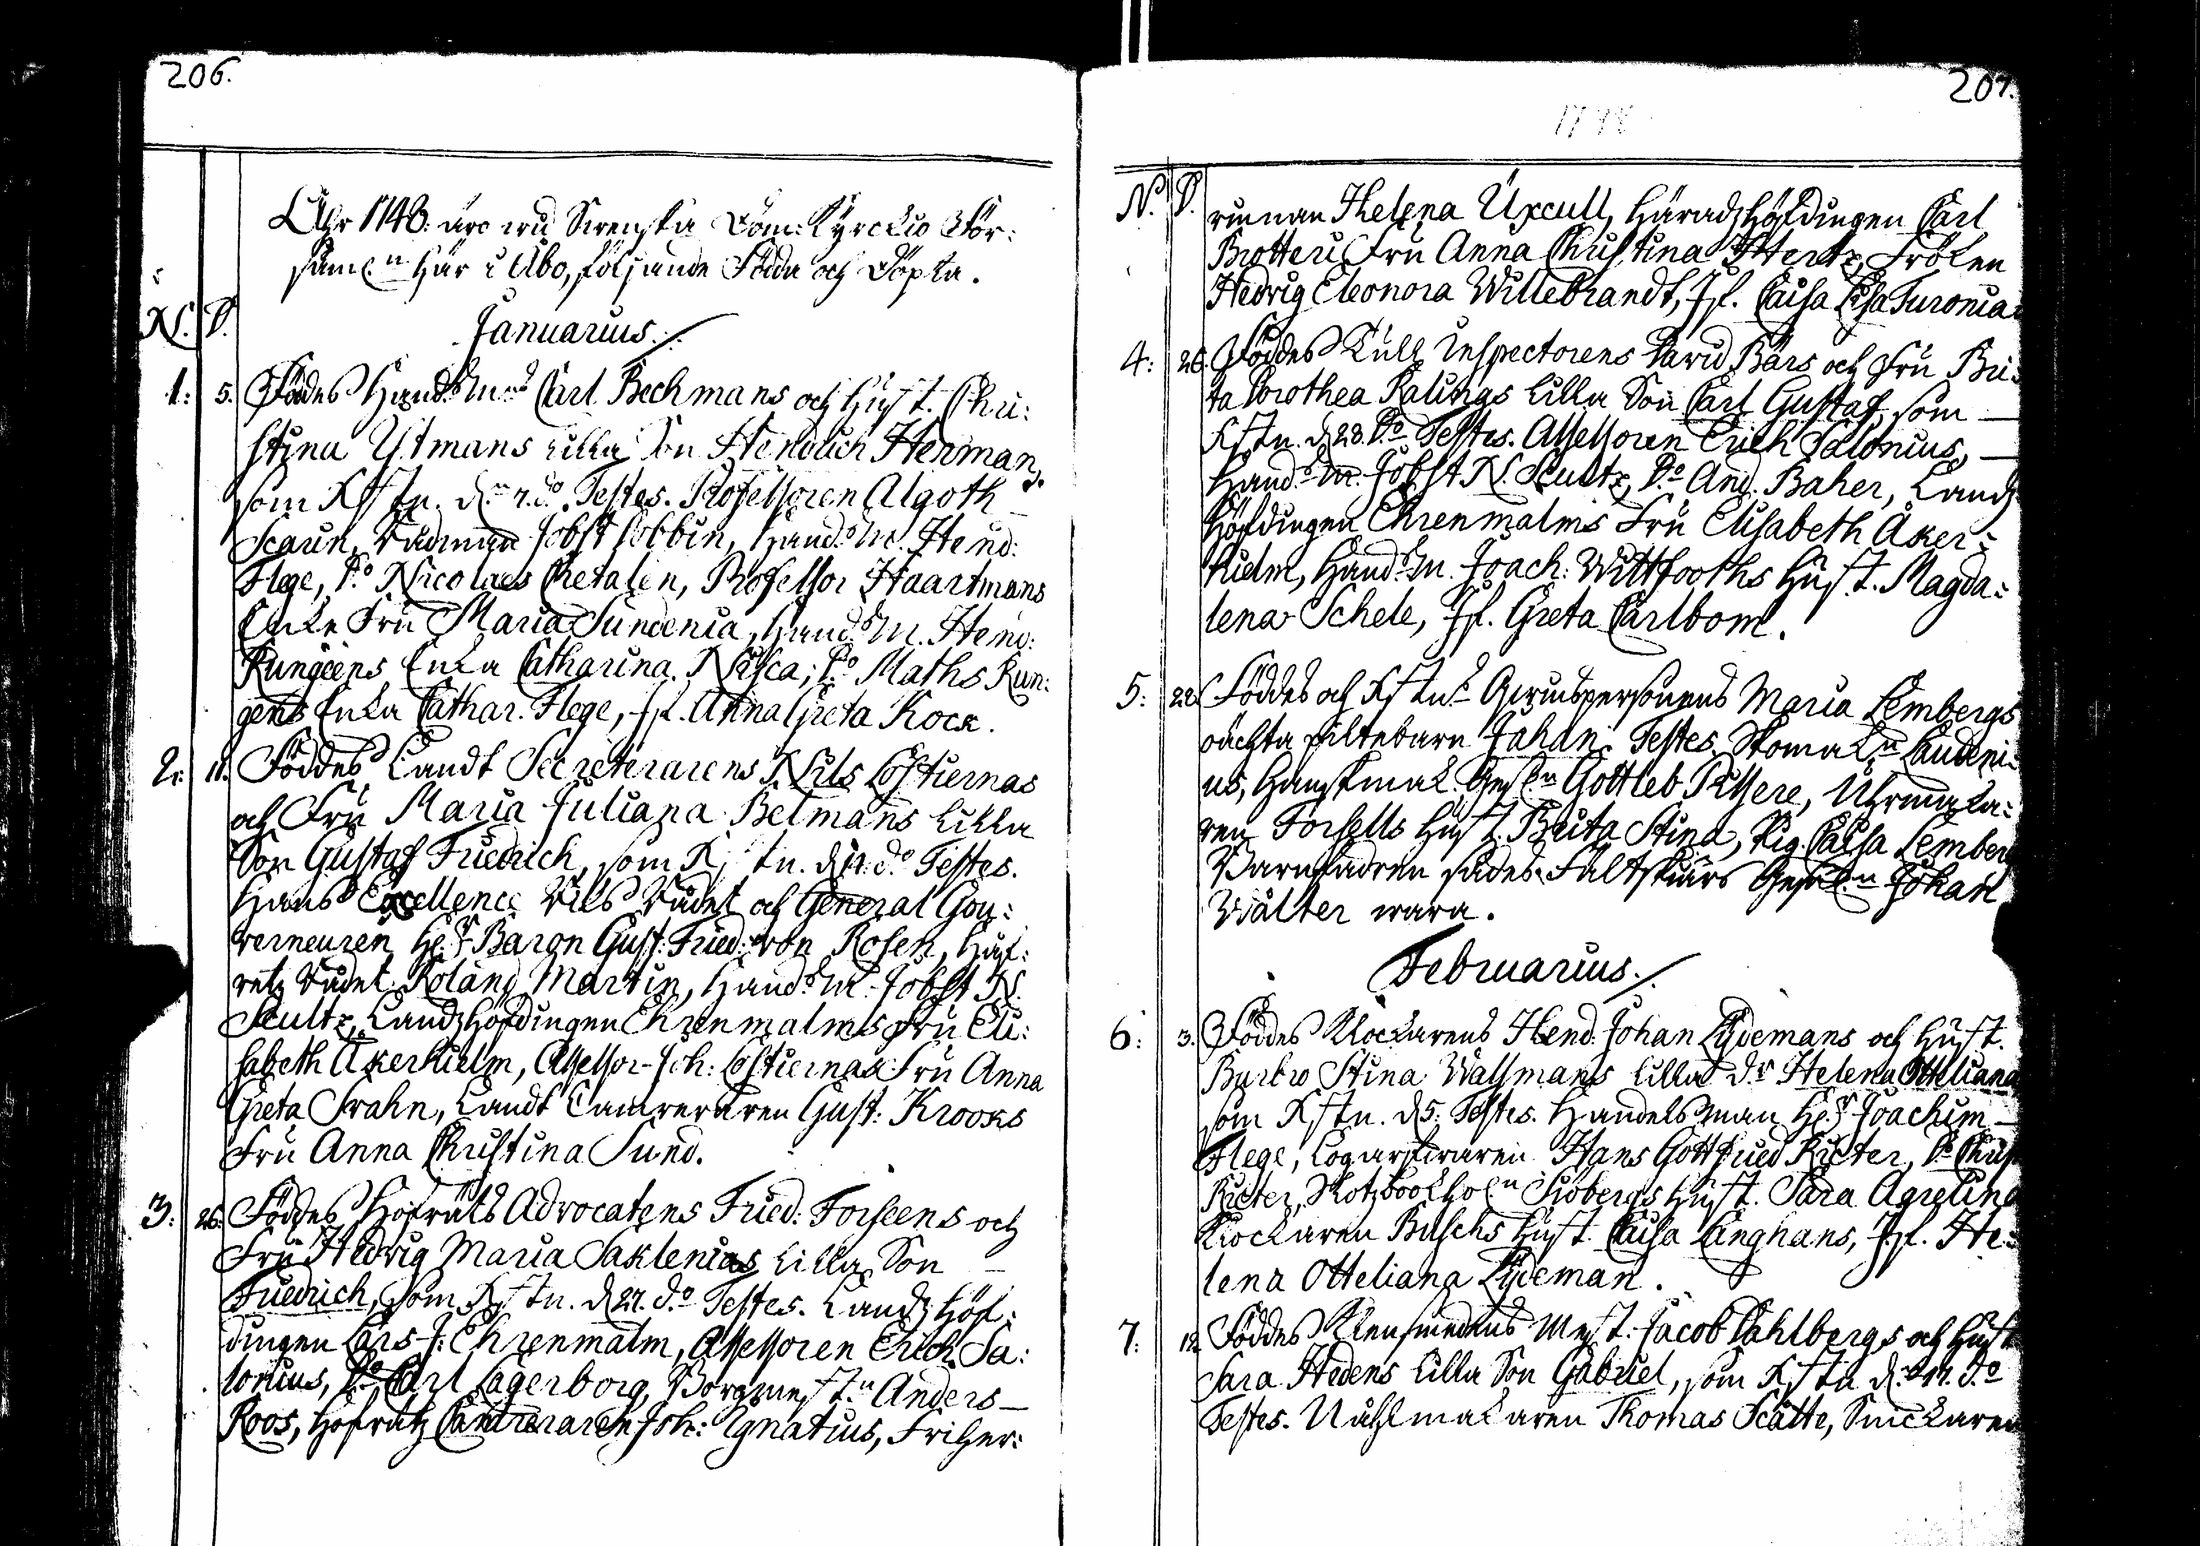 206.
Åhr 1748: äro wid Swenska Döm: Kyrckio För:
samln här i Åbo, följande Födda och Döpta.
N. D.
Januarius.
1: 5. Föddes Handsms Carl Beckmans och Hust. Chri:
stina Utmans lilla Son Hendrich Herman,
som Kstn. dn 7. do. Testes. Professoren Algoth
Scarin, Rådman Jobst Dobbin, Handsm. Hend:
Flege, Do Nicolaes Cretalen, Professor Haartmans
Enke Fru Maria Sundenia, Handsm. Hend:
Rungeens Enka Catharina Nisca; Do Maths Run:
geens Enka Cathar. Flege, Jfr. Anna Greta Kock.
2: 11. Föddes Landt Secreterarens Nils Costiernas
och Fru Maria Juliana Belmans lilla
Son Gustaf Friedrich, som Kstn. d. do Testes.
Hans Excellence Riks Rådet och General Gou:
verneuren He:r Baron Gust: Fried: von Rosen, Hof:
retz Rådet Roland Martin, Handsm. Jobst N.
Scultz, Landzhöfdingen Ehrenmalms Fru Eli:
sabeth Åkerhielm, Assessor Joh: Costiernas Fru Anna
Greta Svahn, Landt Camreraren Gust: Krooks
Fru Anna Christina Sund.
3: 26. Föddes Hofräts Advocatens Fried: Forseens och
Fru Hedvig Maria Saklenias lilla Son
Friedrich, som Kstn. d 27. do Testes. Landz Höf:
dingen Lars J: Ehrenmalm, Assessoren Erich Sa:
lonius, Do Carl Lagerborg, Borgmestn Anders
Roos, Hofrätz Camreraren Joh: Ignatius, Friher:
207.
1748
N. D.
rinnan Helena Üxcull, Häradzhöfdingen Carl
Brotteri Fru Anna Christina Hertz, Frölen
Hedvig Eleonora Willebrandt, Jfr. Caisa Lisa Turonia.
4: 26. Föddes Tull Inspectorens David Bärs och Fru Bri:
ta Dorothea Kalings lilla Son Carl Gustaf, som
Kstn. d 28. Do Testes. Assessoren Erich Salonius,
Handsm. Jobst N. Scultz, Do And. Baher, Landz
Höfdingen Ehrenmalms Fru Elisabeth Åker:
hielm, Handsm. Joach: Wittfooths Hust. Magda:
lena Schele, Jfr. Greta Carlbom.
5: 28. Föddes och Kstns Qwinspersonens Maria Lembergs
oächta piltebarn Johan. Testes. Skomakn Laudeni:
us, Handskmak. Gesln Gottleb, Uhrmaka:
ren Forsells Hust. Brita Stina, Pig. Caisa Lemberg
Barnfadren sades Fältskiärs Gesäln Johan
Wälter wara.
Februarius.
6: 3. Föddes Klockarens Hend: Johan Lydemans och Hust.
Barbro Stina Wallmans lilla dr Helena Otteliana
som Kstn. d 5: Testes. Handelsman He:r Joachim
Flege, Hans Gottfried Richter, Do Christ
Richter, Siöbergs Hust. Sara Agrelina
Klockaren Buschs Hust. Caisa Langhans, Jfr. He:
lena Otteliana Lydeman.
7: 12. Föddes Klensmedens Mest. Jacob Dahlbergs och Hust
Sara Hedens lilla Son Gabriel, som Kstn d. 14. do
Testes. Thomas Scätte, Snickaren